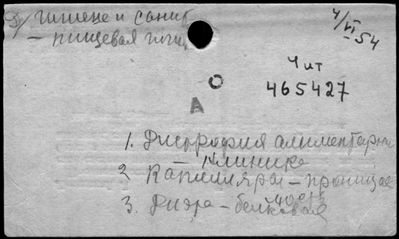 5) гигиене и санит
– пищевая гиги
4/VI 54
Чит
465427
А О
1. Дистрофия алиментарн
– клиника
2 Капилляры – проницае
мость
3. Диэта – белковая